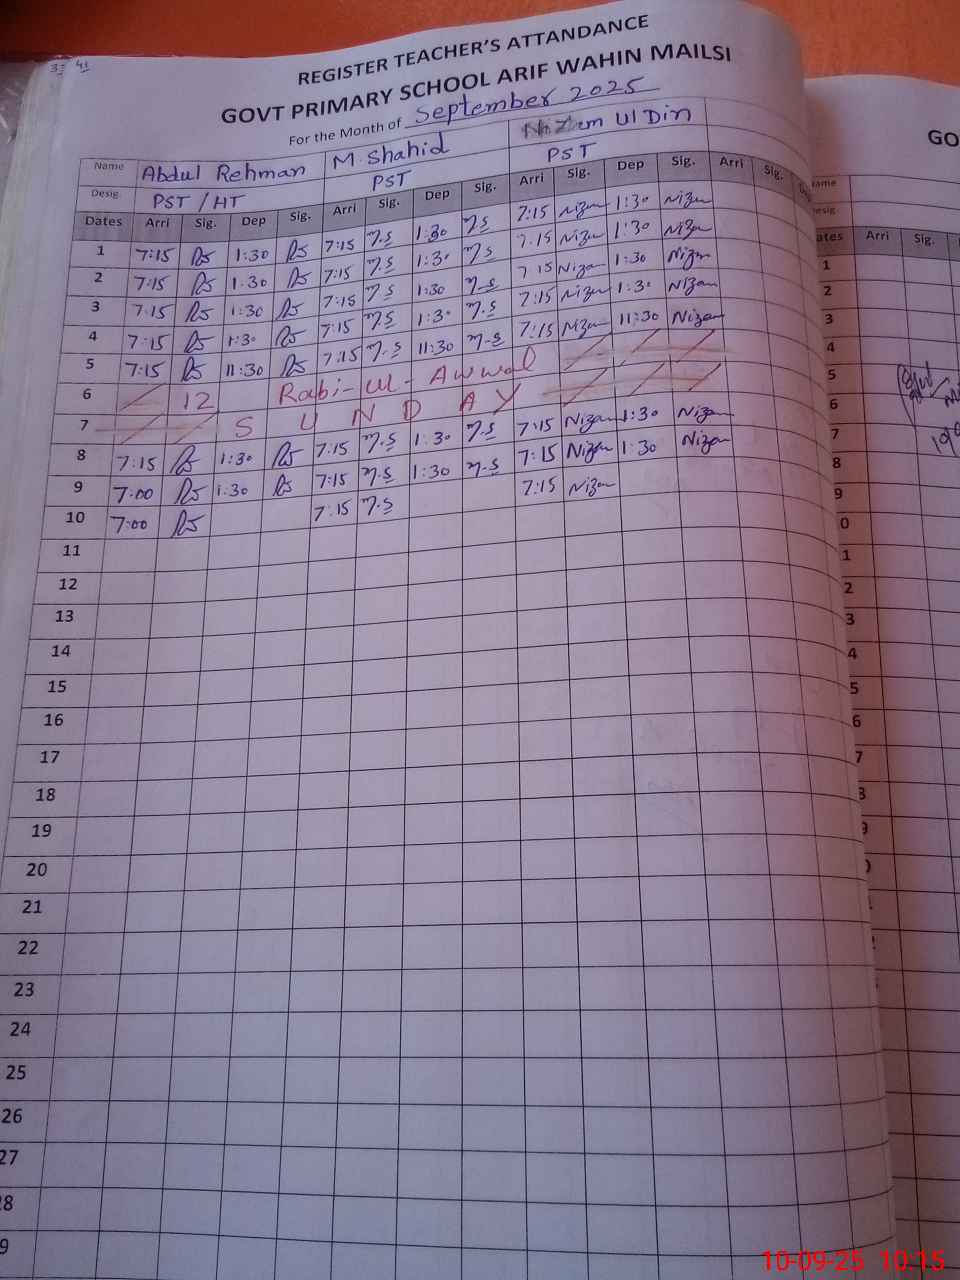 REGISTER TEACHER'S ATTANDANCE
GOVT PRIMARY SCHOOL ARIF WAHIN MAILSI
For the Month of September 2025
Name Abdul Rehman M. Shahid Nizam Ul Din
Desig. PST / HT PST PST
Dates Arri Sig. Dep Sig. Arri Sig. Dep Sig. Arri Sig. Dep Sig. Arri Sig.
1 7:15 1:30 7:15 M.S 1:30 M.S 7:15 Nizam 1:30 Nizam
2 7:15 1:30 7:15 M.S 1:30 M.S 7:15 Nizam 1:30 Nizam
3 7:15 1:30 7:15 M.S 1:30 M.S 7:15 Nizam 1:30 Nizam
4 7:15 1:30 7:15 M.S 1:30 M.S 7:15 Nizam 1:30 Nizam
5 7:15 11:30 7:15 M.S 11:30 M.S 7:15 Nizam 11:30 Nizam
6 12 Rabi-ul-Awwal
7 SUNDAY
8 7:15 1:30 7:15 M.S 1:30 M.S 7:15 Nizam 1:30 Nizam
9 7:00 1:30 7:15 M.S 1:30 M.S 7:15 Nizam 1:30 Nizam
10 7:00 7:15 M.S 7:15 Nizam
11
12
13
14
15
16
17
18
19
20
21
22
23
24
25
26
27
28
9
GO
ame
esig.
ates Arri Sig.
1
2
3
4
5
6
7
8
9
0
1
2
3
4
5
6
7
8
10-09-25 10:15